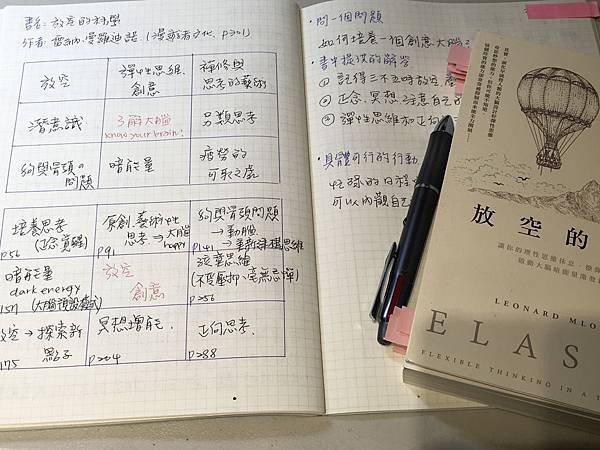 書名:放空的科學
作者:雷納‧曼羅迪諾.(漫遊者文化, p.301)
放空
彈性思維.
創意
禪修與
思考的藝術
潛意識
了解大腦
know your brain!
另類思考
狗與骨頭的
問題
暗能量
疲勞的
可取之處
培養思考
(正念覺醒)
p56
原創.藝術性
思考→大腦
happy
p91
狗與骨頭問題
→動腦
p141→重新建構思維
暗能量
dark energy
(大腦預設模式)
放空
創意
孩童思維
(不受壓抑、毫無忌憚)
p256
放空→探索新
點子
p175
冥想增能.
p204
正向思考.
p288
‧問一個問題
如何培養一個創意大腦
‧書中提供的解答
① 記得三不五時放空
② 正念、冥想.注意自己
③ 彈性思維和正向
‧具體可行的行動
忙碌的日程
可以內觀自己
放空的
讓你的理性思維休息,
啟動大腦暗能量激發
LEONARD MLO
ELAS
FLEXIBLE THINKING IN A